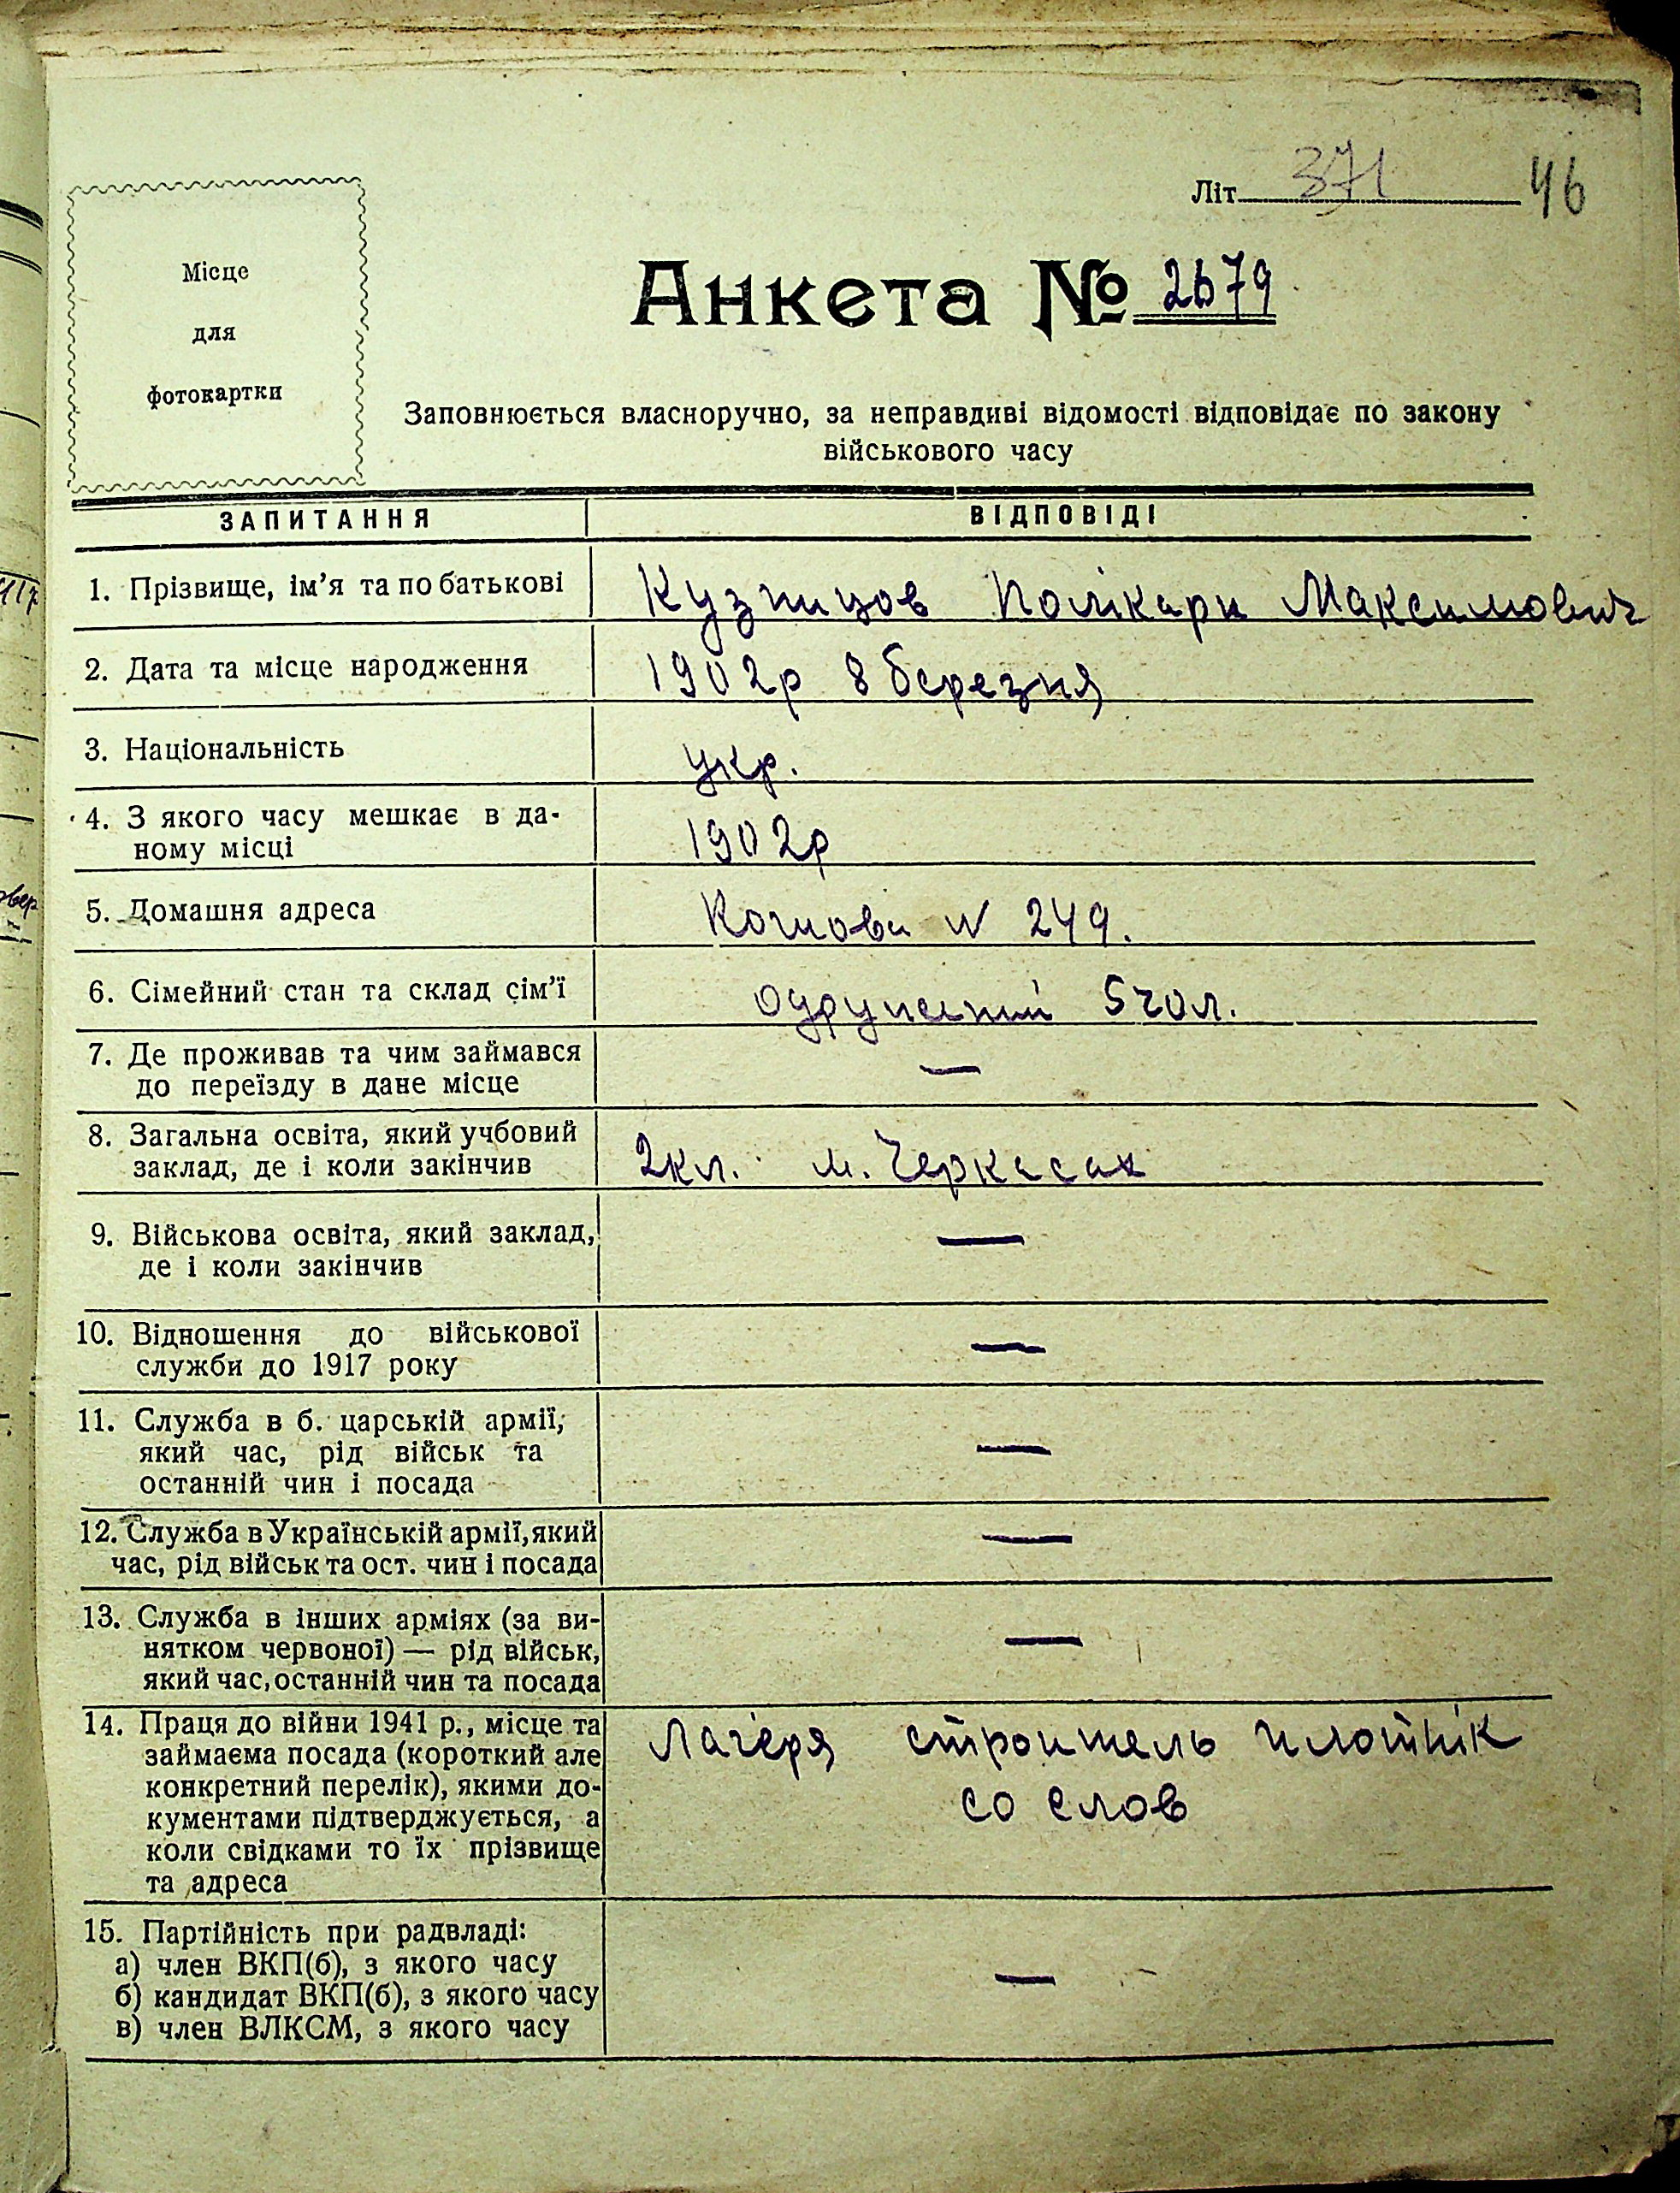 Літ 371 46
Місце
для
фотокартки
Анкета № 2679
Заповнюється власноручно, за неправдиві відомості відповідає по закону
військового часу
ЗАПИТАННЯ ВІДПОВІДІ
1. Прізвище, ім'я та по батькові Кузницов Полікарп Максимович
2. Дата та місце народження 1902р 8 березня
3. Національність укр.
4. З якого часу мешкає в да-
ному місці 1902р
5. Домашня адреса N 249.
6. Сімейний стан та склад сім'ї одружений 5 чол.
7. Де проживав та чим займався
до переїзду в дане місце —
8. Загальна освіта, який учбовий
заклад, де і коли закінчив 2кл. м. Черкасах
9. Військова освіта, який заклад,
де і коли закінчив —
10. Відношення до військової
служби до 1917 року —
11. Служба в б. царській армії,
який час, рід військ та
останній чин і посада —
12. Служба в Українській армії, який
час, рід військ та ост. чин і посада —
13. Служба в інших арміях (за ви-
нятком червоної) — рід військ,
який час, останній чин та посада —
14. Праця до війни 1941 р., місце та Лагеря строитель плотнік
займаєма посада (короткий але
конкретний перелік), якими до- со слов
кументами підтверджується, а
коли свідками то їх прізвище
та адреса
15. Партійність при радвладі:
а) член ВКП(б), з якого часу
б) кандидат ВКП(б), з якого часу —
в) член ВЛКСМ, з якого часу